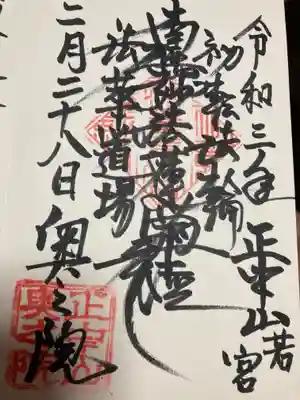 令和三年 正中山 若宮
初転法輪
南無妙法蓮華経
法華道場
二月二十八日 奥之院